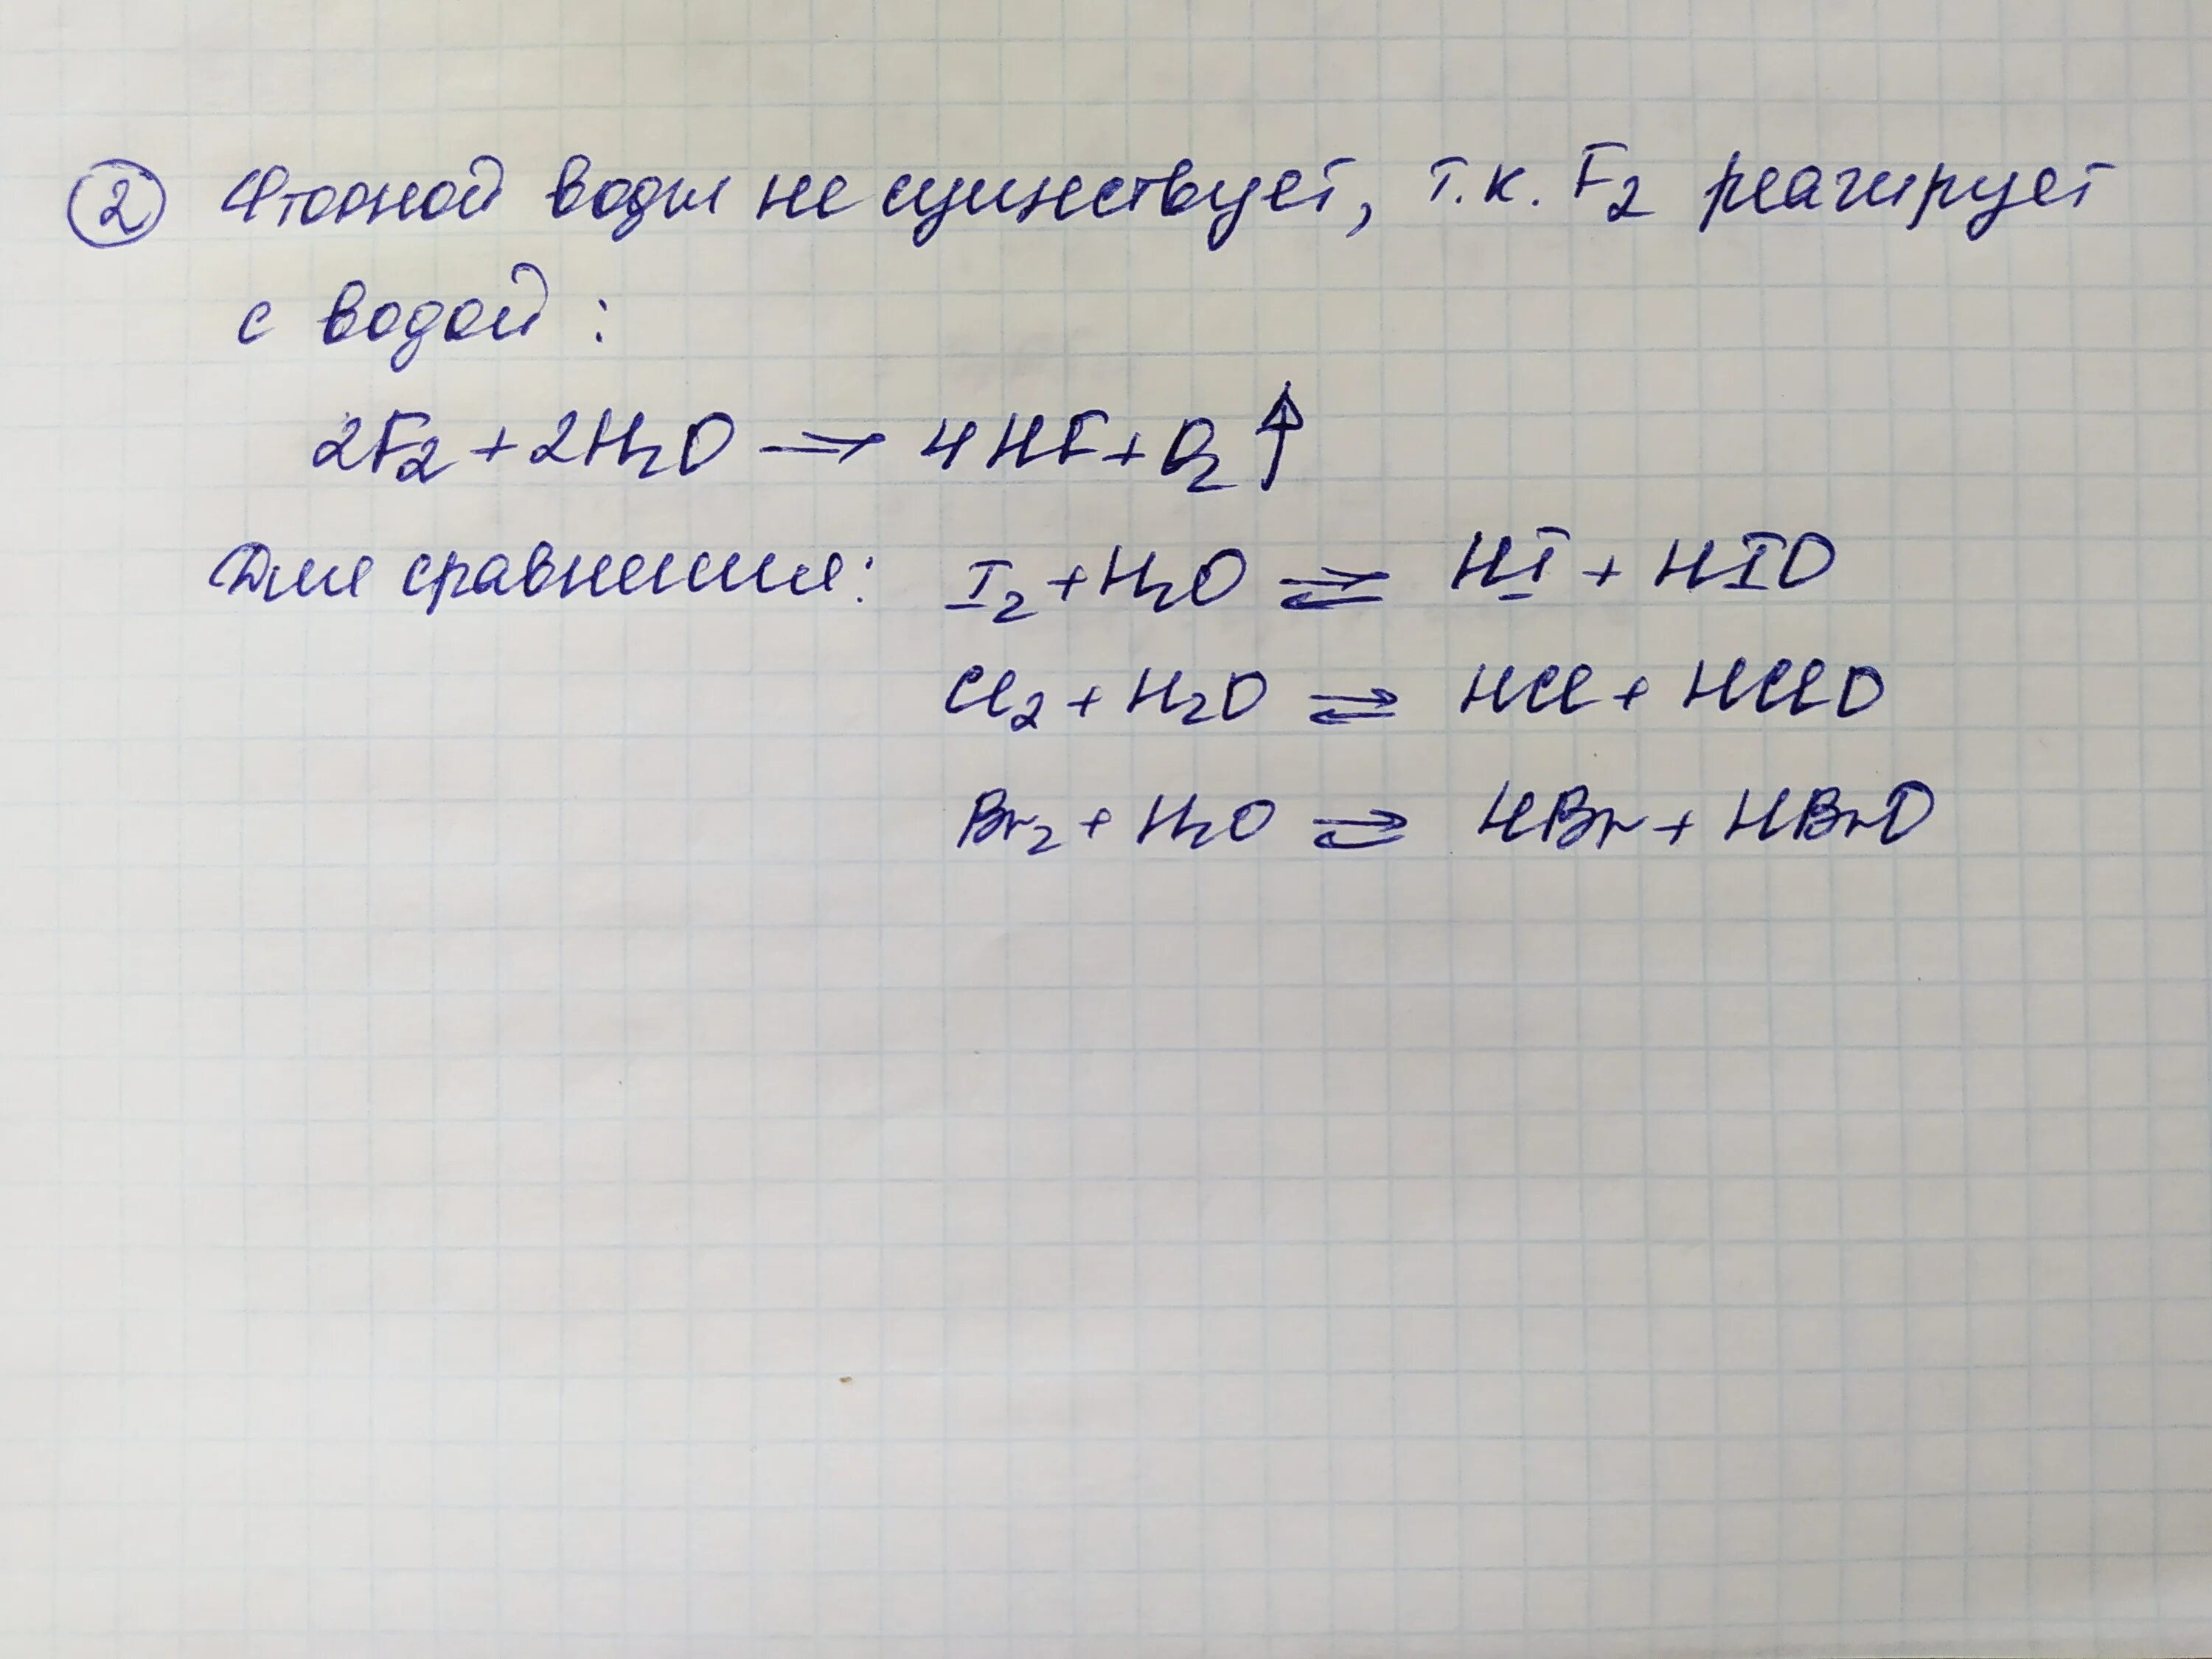 ② Фторной воды не существует, т.к. F₂ реагирует
с водой:
2F₂ + 2H₂O → 4HF + O₂↑
Для сравнения: I₂ + H₂O ⇌ HI + HIO
Cl₂ + H₂O ⇌ HCl + HClO
Br₂ + H₂O ⇌ HBr + HBrO